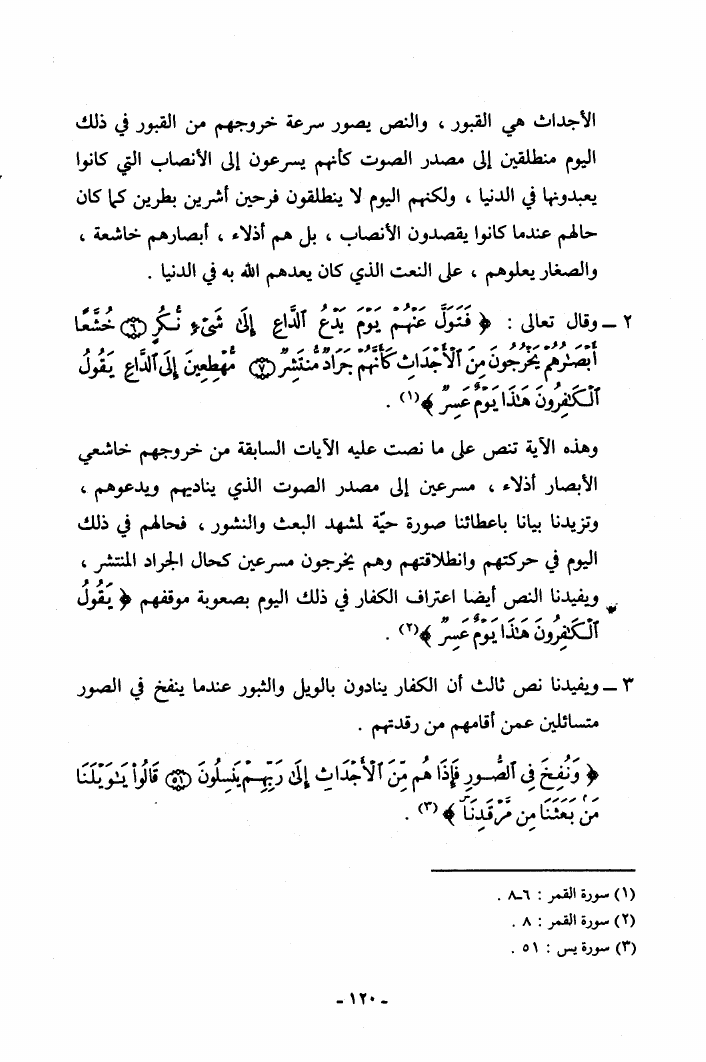 الأجداث هي القبور ، والنص يصور سرعة خروجهم من القبور في ذلك
اليوم منطلقين إلى مصدر الصوت كأنهم يسرعون إلى الأنصاب التي كانوا
يعبدونها في الدنيا ، ولكنهم اليوم لا ينطلقون فرحين أشرين بطرين كما كان
حالهم عندما كانوا يقصدون الأنصاب ، بل هم أذلاء ، أبصارهم خاشعة ،
والصغار يعلوهم ، على النعت الذي كان يعدهم الله به في الدنيا .
٢ ــ وقال تعالى : ﴿ فَتَوَلَّ عَنْهُمْ يَوْمَ يَدْعُ ٱلدَّاعِ إِلَىٰ شَىْءٍ نُّكُرٍ ٦ خُشَّعًا
أَبْصَـٰرُهُمْ يَخْرُجُونَ مِنَ ٱلْأَجْدَاثِ كَأَنَّهُمْ جَرَادٌ مُّنتَشِرٌ ٧ مُّهْطِعِينَ إِلَى ٱلدَّاعِ يَقُولُ
ٱلْكَـٰفِرُونَ هَـٰذَا يَوْمٌ عَسِرٌ ﴾(١) .
وهذه الآية تنص على ما نصت عليه الآيات السابقة من خروجهم خاشعي
الأبصار أذلاء ، مسرعين إلى مصدر الصوت الذي يناديهم ويدعوهم ،
وتزيدنا بيانا باعطائنا صورة حيّة لمشهد البعث والنشور ، فحالهم في ذلك
اليوم في حركتهم وانطلاقتهم وهم يخرجون مسرعين كحال الجراد المنتشر ،
ويفيدنا النص أيضا اعتراف الكفار في ذلك اليوم بصعوبة موقفهم ﴿ يَقُولُ
ٱلْكَـٰفِرُونَ هَـٰذَا يَوْمٌ عَسِرٌ ﴾(٢) .
٣ ــ ويفيدنا نص ثالث أن الكفار ينادون بالويل والثبور عندما ينفخ في الصور
متسائلين عمن أقامهم من رقدتهم .
﴿ وَنُفِخَ فِى ٱلصُّورِ فَإِذَا هُم مِّنَ ٱلْأَجْدَاثِ إِلَىٰ رَبِّهِمْ يَنسِلُونَ ٥١ قَالُوا۟ يَـٰوَيْلَنَا
مَنۢ بَعَثَنَا مِن مَّرْقَدِنَا ﴾ (٣) .
(١) سورة القمر : ٦ـ٨ .
(٢) سورة القمر : ٨ .
(٣) سورة يس : ٥١ .
- ١٢٠ -